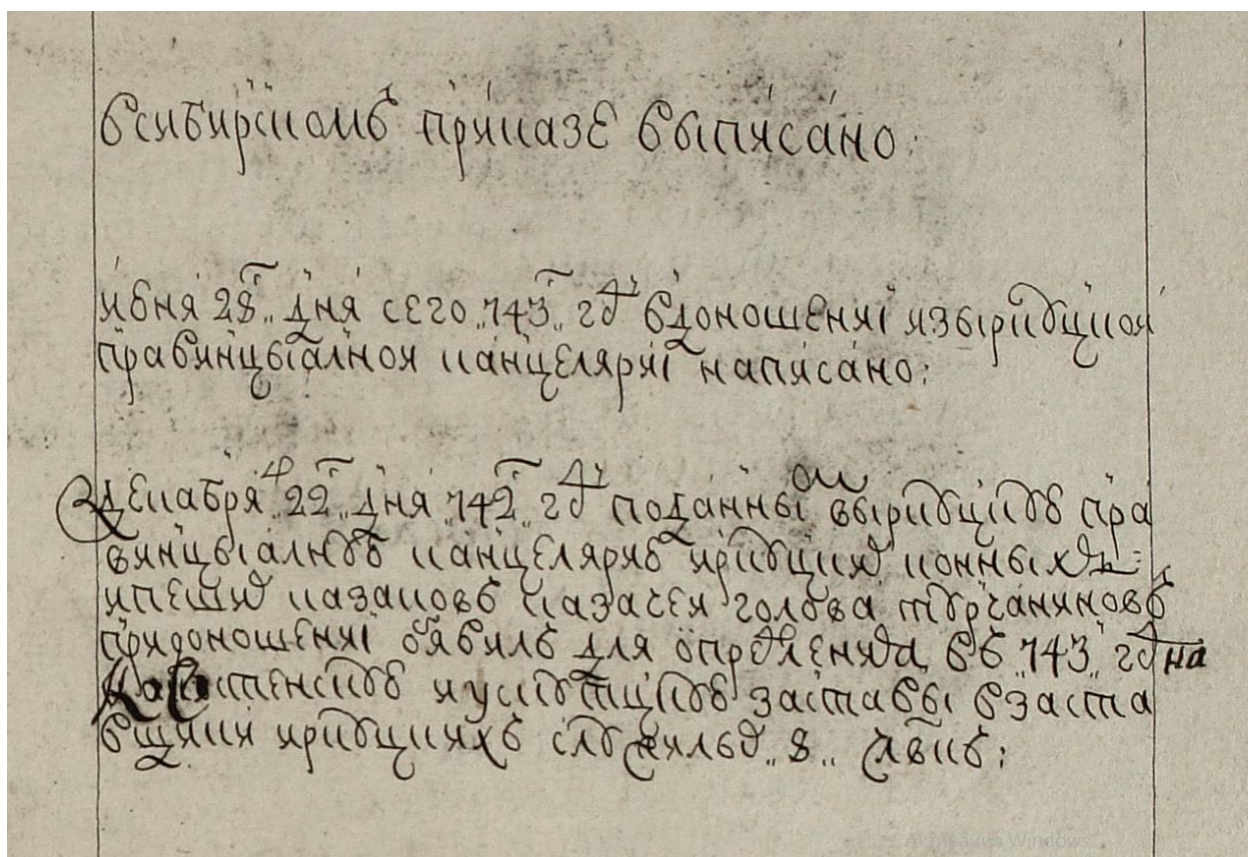 всибирскомъ приказе выписано:
июня 28„ дня сего „743„ гду вдоношениі изъиркуцкои
правинцыалнои канцеляриі написано:
Декабря „22„ дня „742„ гду поданным въиркуцкую пра
винцыалную канцелярию иркуцких конных
и пеших казаковъ казачеи голова турчаниновъ
придоношениі обявилъ для определения въ „743„ гд на
и устькутцкую заставы взаста
вщики иркуцкихъ служилых „8„ члвкъ: